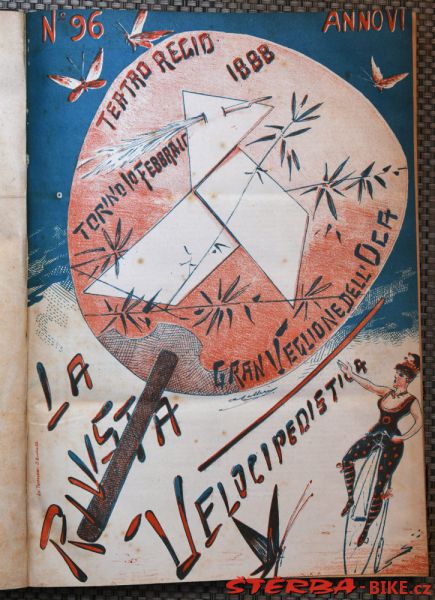 Nº 96
ANNO VI
TEATRO REGIO
1888
TORINO 10 FEBBRAIO
GRAN VEGLIONE DELL'OCA
LA
RIVISTA
VELOCIPEDISTICA
STERBA-BIKE.cz